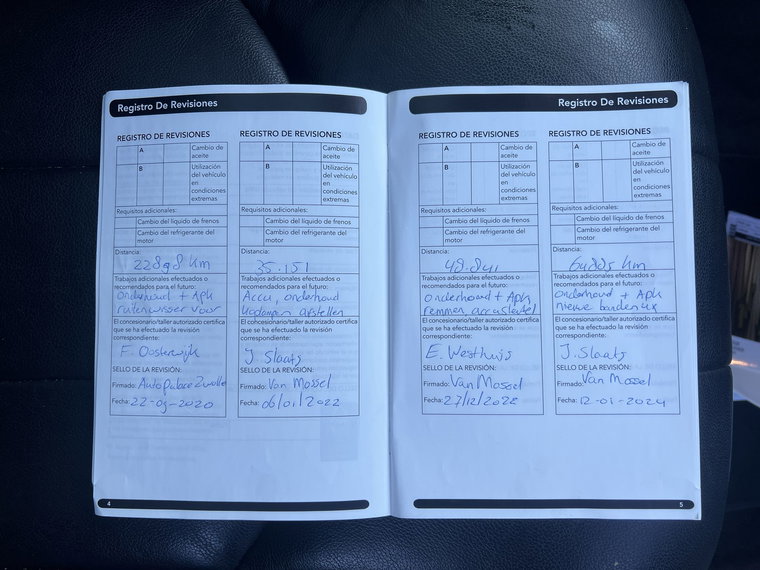 Registro De Revisiones
REGISTRO DE REVISIONES
A
Cambio de
aceite
B
Utilización
del vehículo
en
condiciones
extremas
Requisitos adicionales:
Cambio del líquido de frenos
Cambio del refrigerante del
motor
Distancia:
22898 km
Trabajos adicionales efectuados o
recomendados para el futuro:
Onderhoud + Apk
ruitenwisser voor
El concesionario/taller autorizado certifica
que se ha efectuado la revisión
correspondiente:
F. Oosterwijk
SELLO DE LA REVISIÓN:
Firmado: AutoPalace Zwolle
Fecha: 22-09-2020
REGISTRO DE REVISIONES
A
Cambio de
aceite
B
Utilización
del vehículo
en
condiciones
extremas
Requisitos adicionales:
Cambio del líquido de frenos
Cambio del refrigerante del
motor
Distancia:
35.151
Trabajos adicionales efectuados o
recomendados para el futuro:
Accu, onderhoud
Koplampen afstellen
El concesionario/taller autorizado certifica
que se ha efectuado la revisión
correspondiente:
J. Slaats
SELLO DE LA REVISIÓN:
Firmado: Van Mossel
Fecha: 06/01/2022
4
Registro De Revisiones
REGISTRO DE REVISIONES
A
Cambio de
aceite
B
Utilización
del vehículo
en
condiciones
extremas
Requisitos adicionales:
Cambio del líquido de frenos
Cambio del refrigerante del
motor
Distancia:
Trabajos adicionales efectuados o
recomendados para el futuro:
Onderhoud + Apk
remmen
El concesionario/taller autorizado certifica
que se ha efectuado la revisión
correspondiente:
E. Westhuis
SELLO DE LA REVISIÓN:
Firmado: Van Mossel
Fecha: 27/12/2022
REGISTRO DE REVISIONES
A
Cambio de
aceite
B
Utilización
del vehículo
en
condiciones
extremas
Requisitos adicionales:
Cambio del líquido de frenos
Cambio del refrigerante del
motor
Distancia:
km
Trabajos adicionales efectuados o
recomendados para el futuro:
Onderhoud + Apk
nieuwe banden
El concesionario/taller autorizado certifica
que se ha efectuado la revisión
correspondiente:
J. Slaats
SELLO DE LA REVISIÓN:
Firmado: Van Mossel
Fecha: 12-01-2024
5